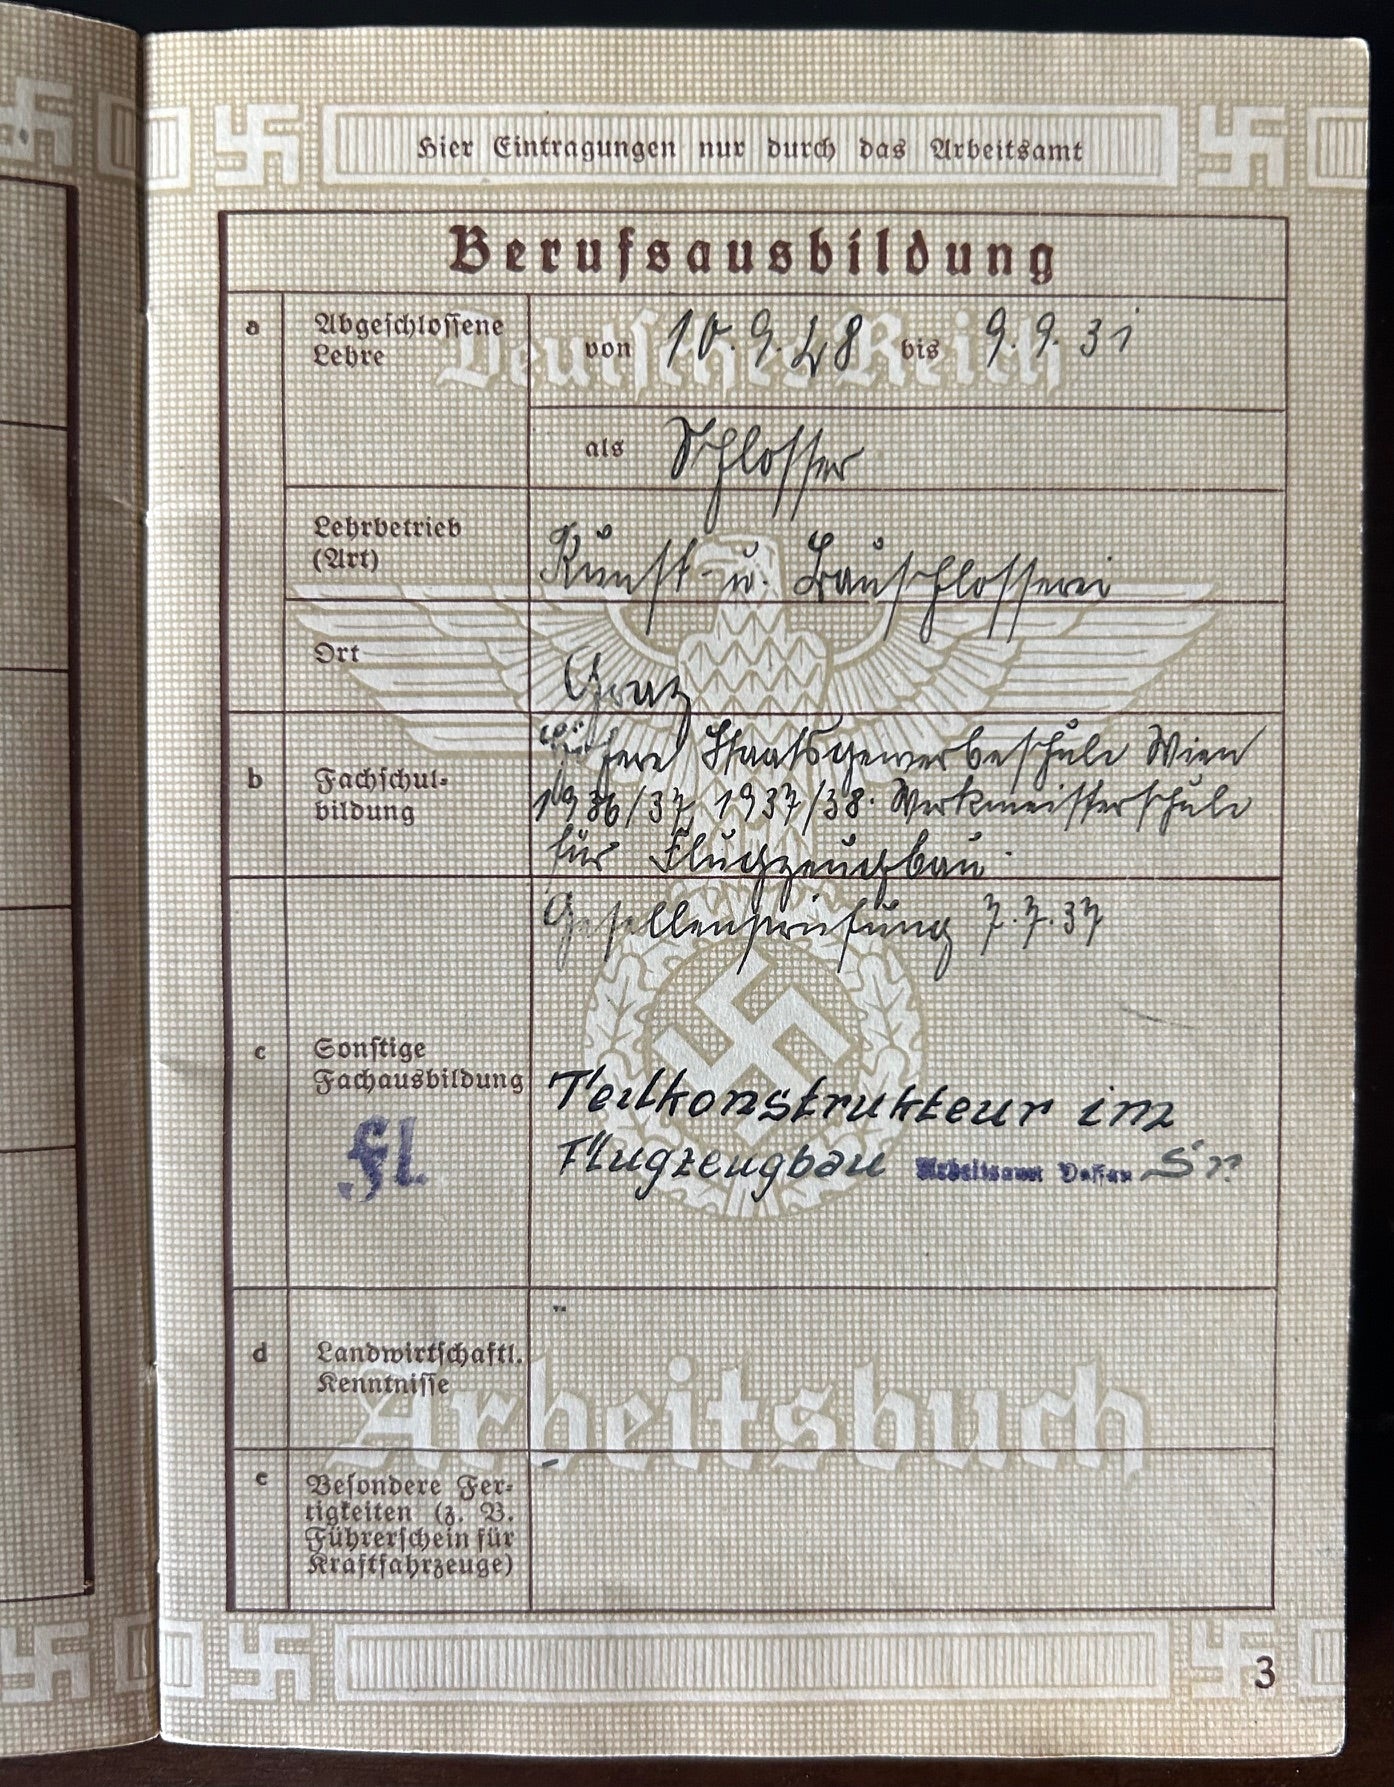 Hier Eintragungen nur durch das Arbeitsamt
Berufsausbildung
Deutsches Reich
a
Abgeschlossene
Lehre
von 10.9.28 bis 9.9.31
als Schlosser
Lehrbetrieb
(Art)
Kunst- u. Bauschlosserei
Ort
Graz
b
Fachschul-
bildung
Höhere Staatsgewerbeschule Wien
1936/37, 1937/38. Werkmeisterschule
für Flugzeugbau.
c
Sonstige
Fachausbildung
Gesellenprüfung 7.7.37
Teilkonstrukteur im
Flugzeugbau Arbeitsamt Dessau
Fl.
d
Landwirtschaftl.
Kenntnisse
Arbeitsbuch
e
Besondere Fer-
tigkeiten (z. B.
Führerschein für
Kraftfahrzeuge)
3